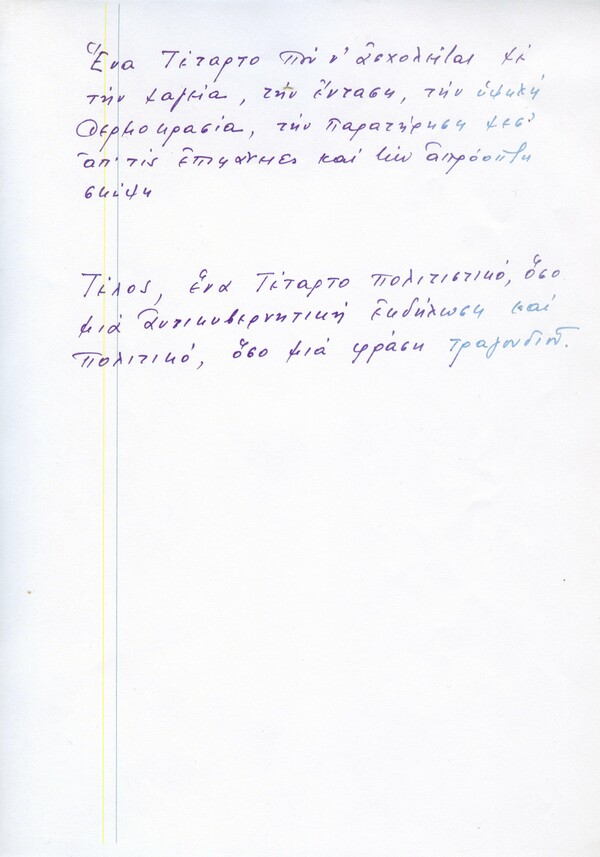 Ἕνα Τέταρτο ποὺ ν' ἀσχολεῖται μὲ
τὴν μαγεία, τὴν ἔνταση, τὴν ὑψηλὴ
θερμοκρασία, τὴν παρατήρηση μεσ'
ἀπ' τὶς ἐπιφάνειες καὶ τὴν ἀπρόοπτη
σκέψη
Τέλος, ἕνα Τέταρτο πολιτιστικό, ὅσο
μιὰ ἀντικυβερνητικὴ ἐκδήλωση καὶ
πολιτικό, ὅσο μιὰ φράση τραγουδιοῦ.